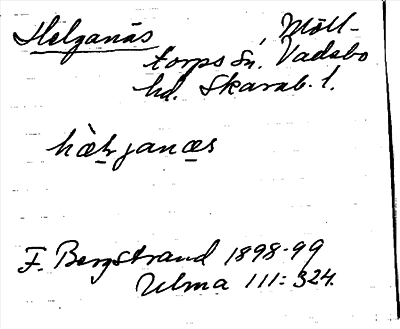 Helganäs, Möll-
torps sn. Vadsbo
hd. Skarab. l.
hæ̀lganæs
F. Bergstrand 1898-99
Ulma 111:324.